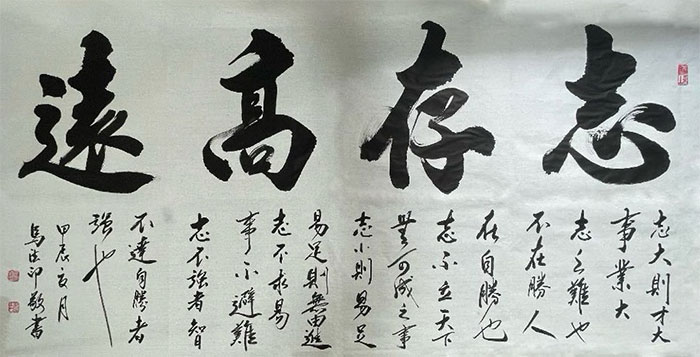 志存高遠
志大則才大
事業大
志之難也
不在勝人
在自勝也
志不立天下
無可成之事
志小則易足
易足則無由進
志不求易
事不避難
志不強者智
不達自勝者
强也
甲辰夏月
馬印敬書